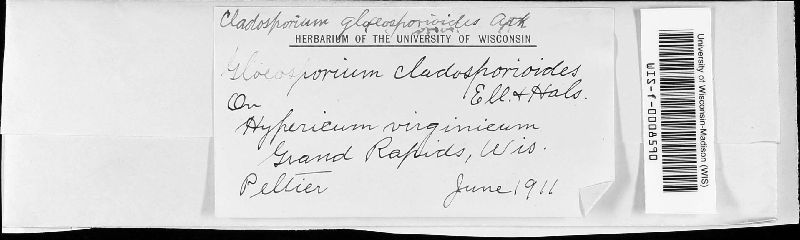 Cladosporium gloeosporioides Atk
HERBARIUM OF THE UNIVERSITY OF WISCONSIN
Gloeosporium cladosporioides
Ell. & Hals.
On
Hypericum virginicum
Grand Rapids, Wis.
Peltier June 1911
University of Wisconsin-Madison (WIS)
WIS-f-0008590